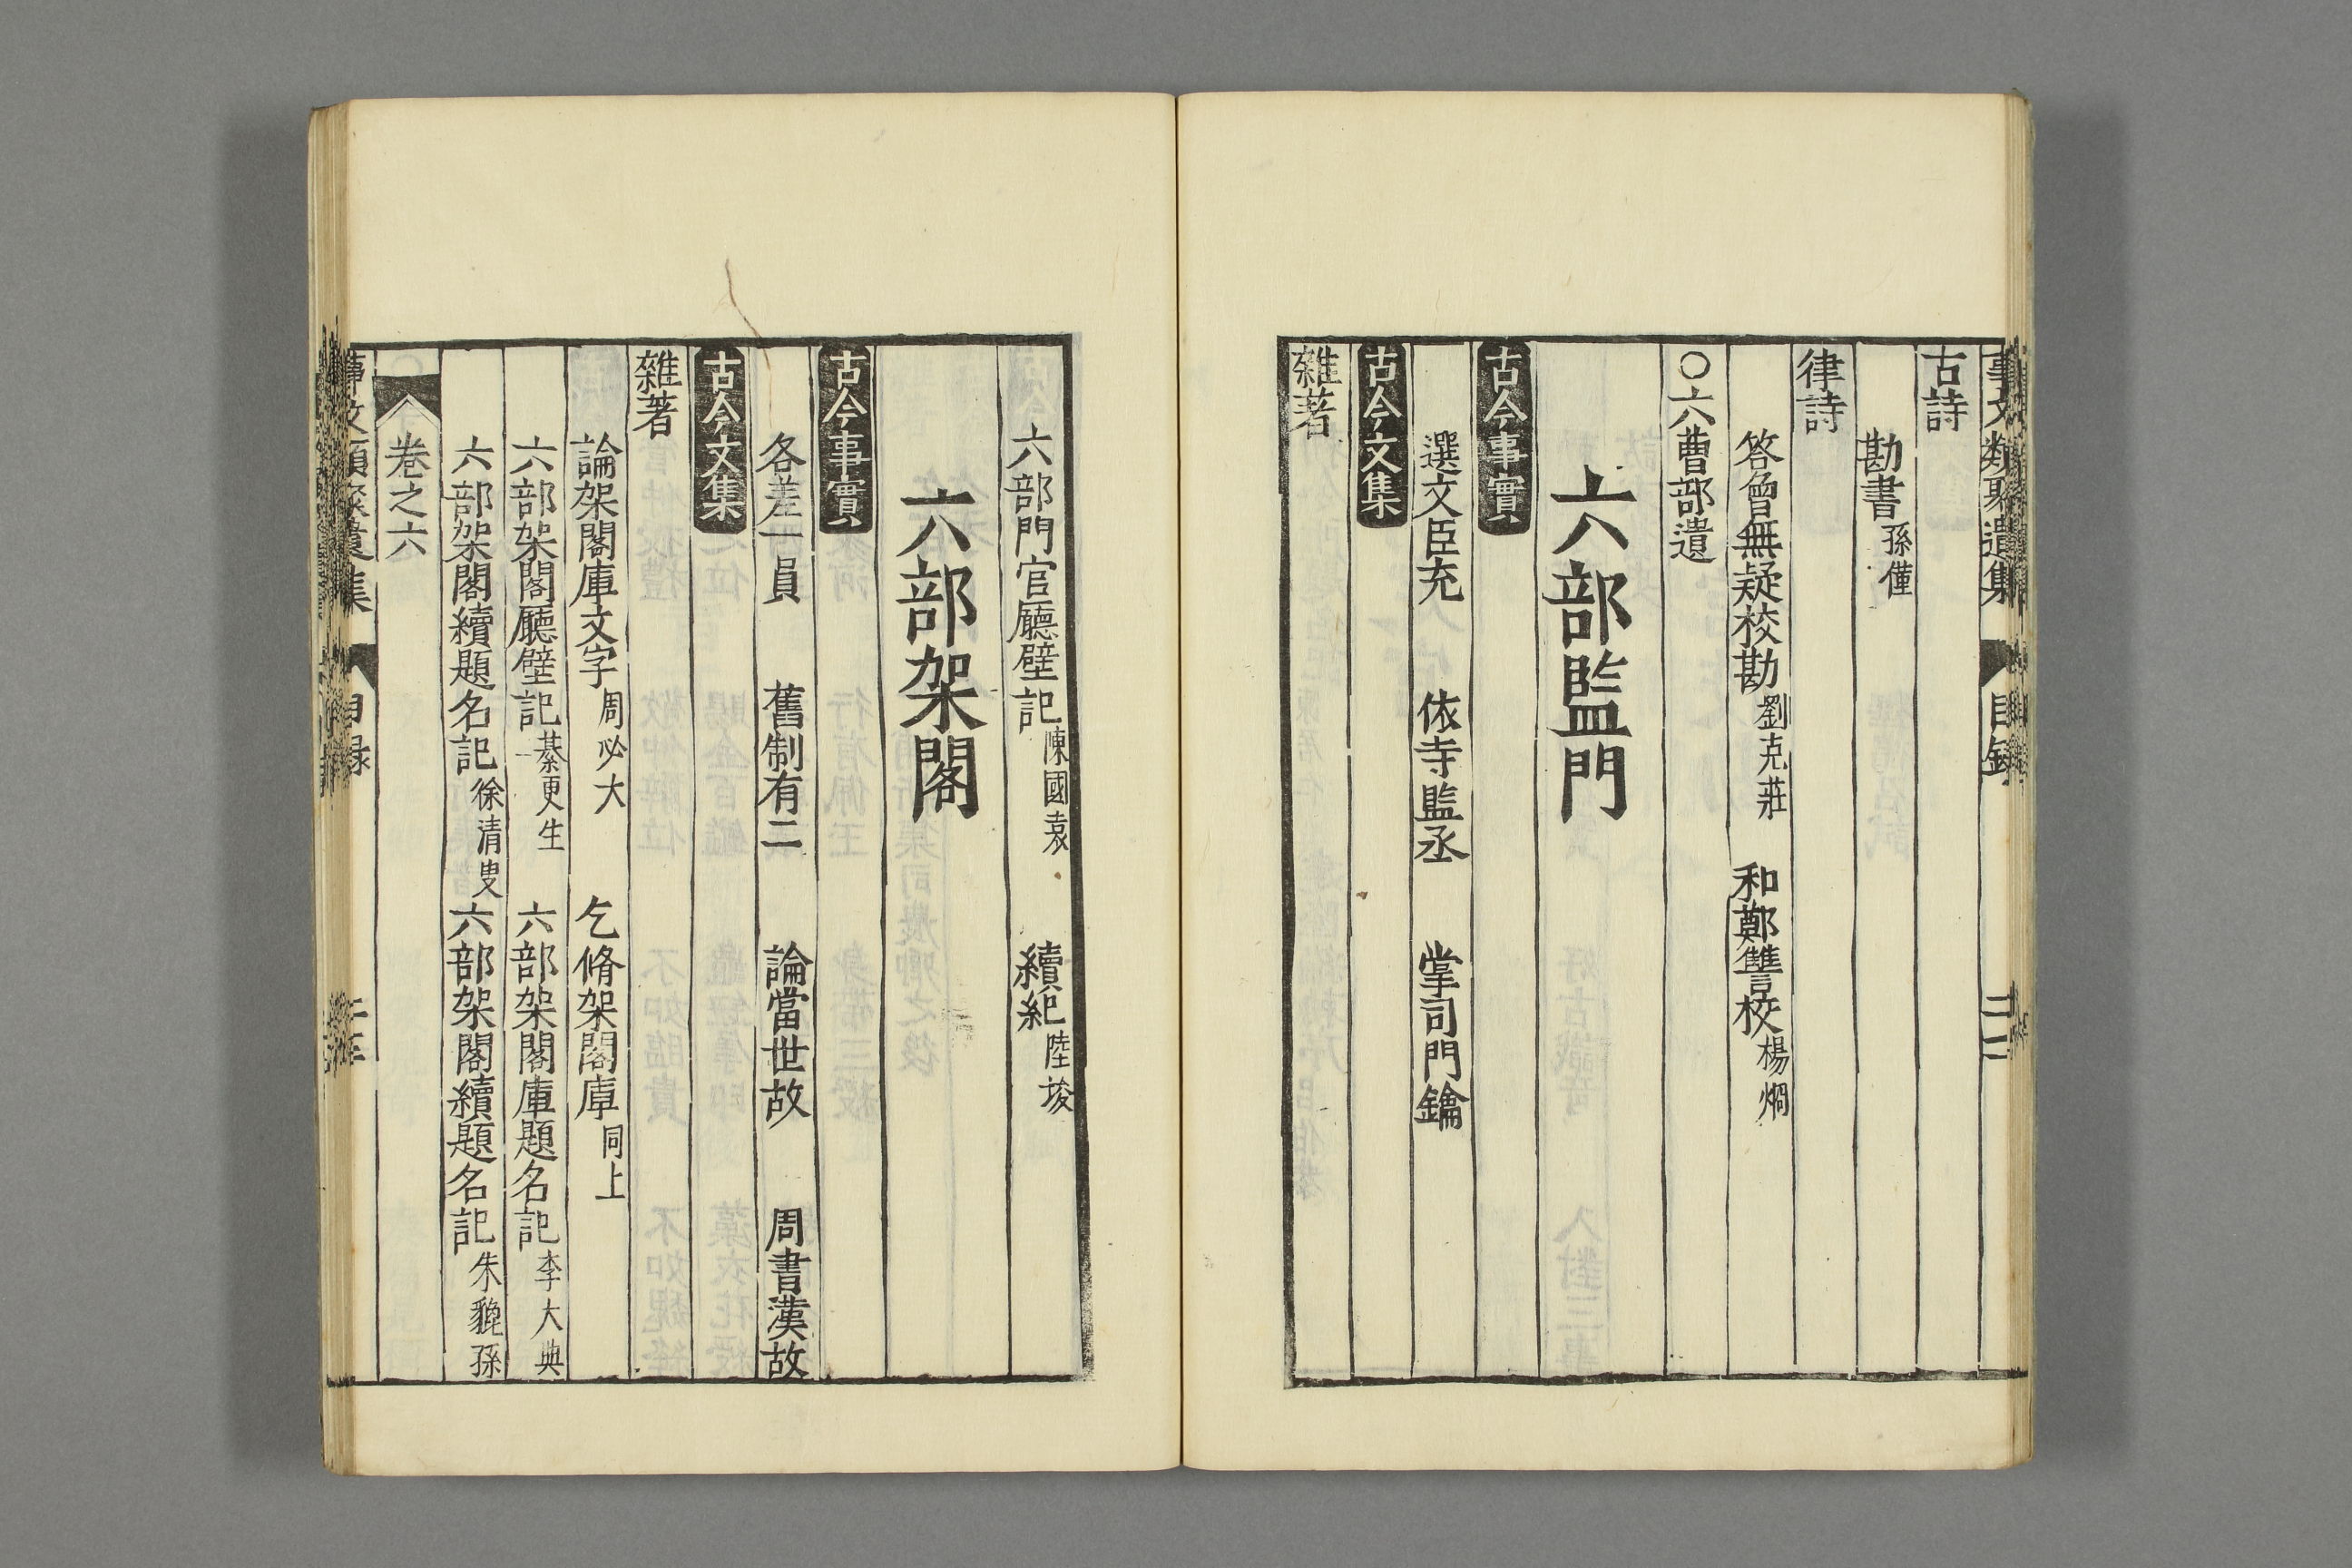 事文類聚遺集　目録　二十二
古詩
勘書 孫僅
律詩
答曾無疑校勘 劉克莊　和鄭讐校 楊烱
○六曹部遺
六部監門
古今事實
選文臣充　依寺監丞　掌司門鑰
古今文集
雜著
六部門官廳壁記 陳國袁　續紀 陸埈
六部架閣
古今事實
各差一員　舊制有二　論當世故　周書漢故
古今文集
雜著
論架閣庫文字 周必大　乞脩架閣庫 同上
六部架閣廳壁記 綦更生　六部架閣庫題名記 李大典
六部架閣續題名記 徐清叟　六部架閣續題名記 朱貔孫
卷之六
事文類聚遺集　目録